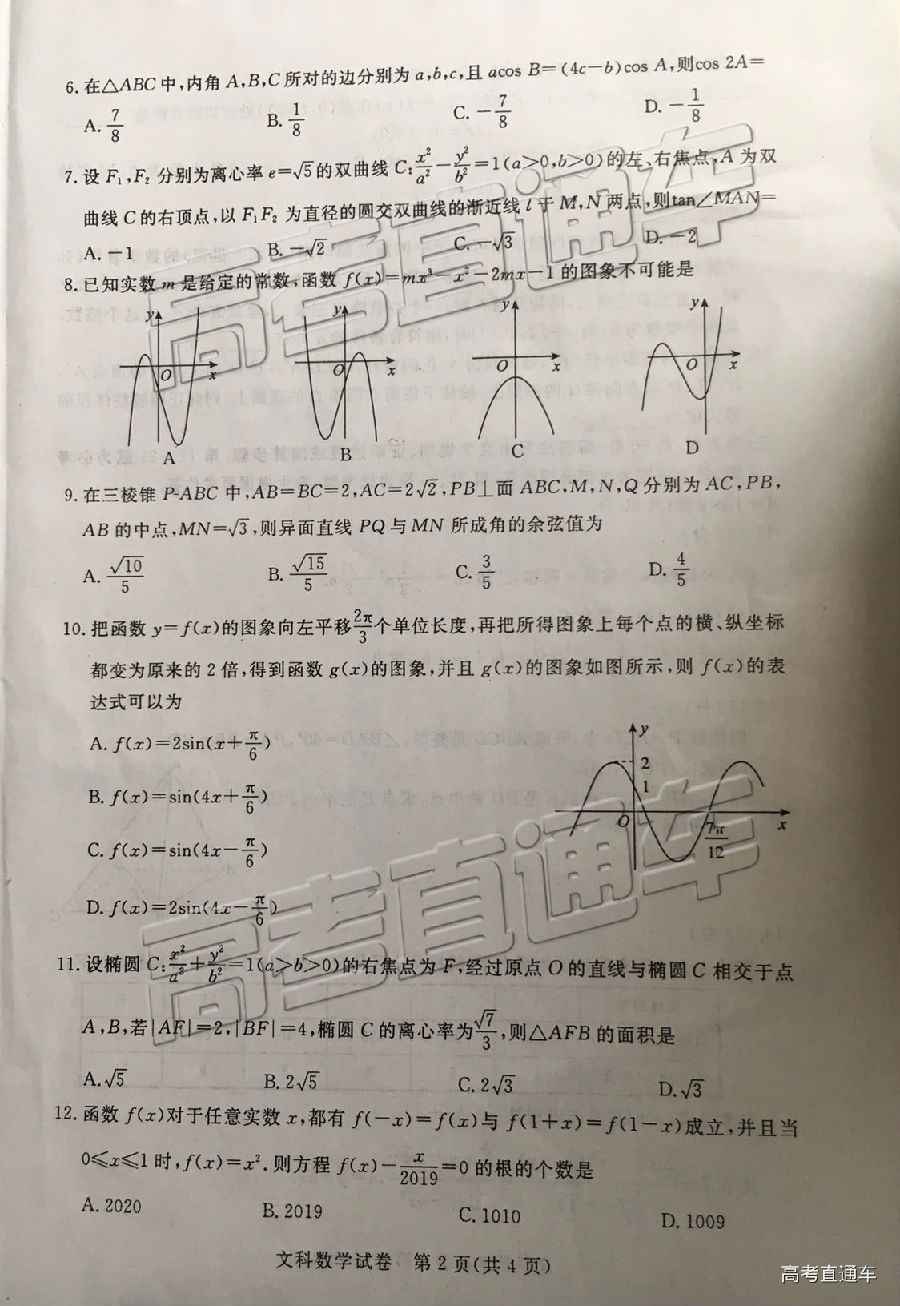 6. 在△ABC中,内角A,B,C所对的边分别为a,b,c,且acos B=(4c-b)cos A,则cos 2A=
A. 7/8 B. 1/8 C. -7/8 D. -1/8
7. 设F₁,F₂分别为离心率e=√5的双曲线C:x²/a²-y²/b²=1(a>0,b>0)的左、右焦点,A为双
曲线C的右顶点,以F₁F₂为直径的圆交双曲线的渐近线l于M,N两点,则tan∠MAN=
A. -1 B. -√2 C. -√3 D. -2
8. 已知实数m是给定的常数,函数f(x)=mx³-x²-2mx-1的图象不可能是
y O x y O x y O x y O x
A B C D
9. 在三棱锥P-ABC中,AB=BC=2,AC=2√2,PB⊥面ABC,M,N,Q分别为AC,PB,
AB的中点,MN=√3,则异面直线PQ与MN所成角的余弦值为
A. √10/5 B. √15/5 C. 3/5 D. 4/5
10. 把函数y=f(x)的图象向左平移2π/3个单位长度,再把所得图象上每个点的横、纵坐标
都变为原来的2倍,得到函数g(x)的图象,并且g(x)的图象如图所示,则f(x)的表
达式可以为
A. f(x)=2sin(x+π/6)
B. f(x)=sin(4x+π/6)
C. f(x)=sin(4x-π/6)
D. f(x)=2sin(4x-π/6)
y 2 1 O 7π/12 x
11. 设椭圆C:x²/a²+y²/b²=1(a>b>0)的右焦点为F,经过原点O的直线与椭圆C相交于点
A,B,若|AF|=2,|BF|=4,椭圆C的离心率为√7/3,则△AFB的面积是
A. √5 B. 2√5 C. 2√3 D. √3
12. 函数f(x)对于任意实数x,都有f(-x)=f(x)与f(1+x)=f(1-x)成立,并且当
0≤x≤1时,f(x)=x².则方程f(x)-x/2019=0的根的个数是
A. 2020 B. 2019 C. 1010 D. 1009
文科数学试卷 第2页(共4页)
高考直通车
高考直通车
高考直通车